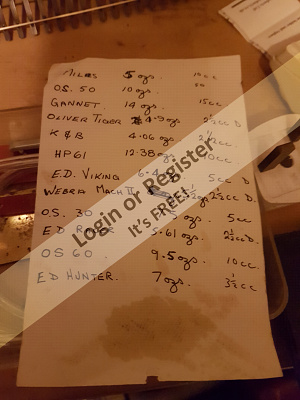 MILES 5 ozs. 10cc
OS. 50 10 ozs.
GANNET. 14 ozs. 15cc
OLIVER TIGER 4.9 ozs. 2½cc D
K & B 4.06 ozs.
HP61 12.38 10cc
E.D. VIKING 5cc D
WEBRA MACH II 2½cc D.
OS. 30 ozs. 5cc
ED 5.61 ozs. 2½cc D.
OS 60 9.5 ozs. 10cc
ED HUNTER. 7 ozs. 3½cc
Login or Register
It's FREE!